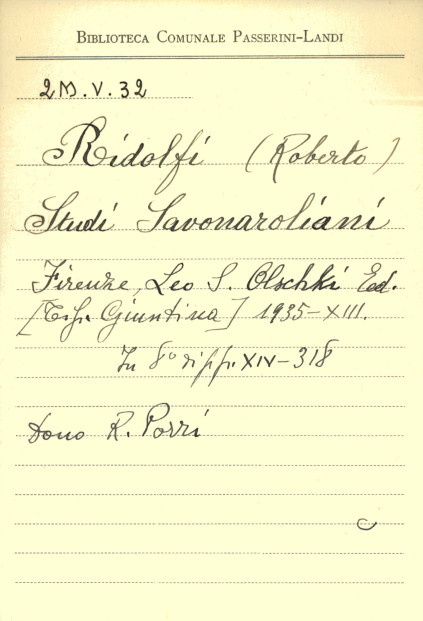 BIBLIOTECA COMUNALE PASSERINI-LANDI
2M.V.32
Ridolfi (Roberto)
Studi Savonaroliani
Firenze, Leo S. Olschki Ed.
[Tip. Giuntina] 1935-XIII.
In 8° di pp. XIV-318
Dono R. Porri
C